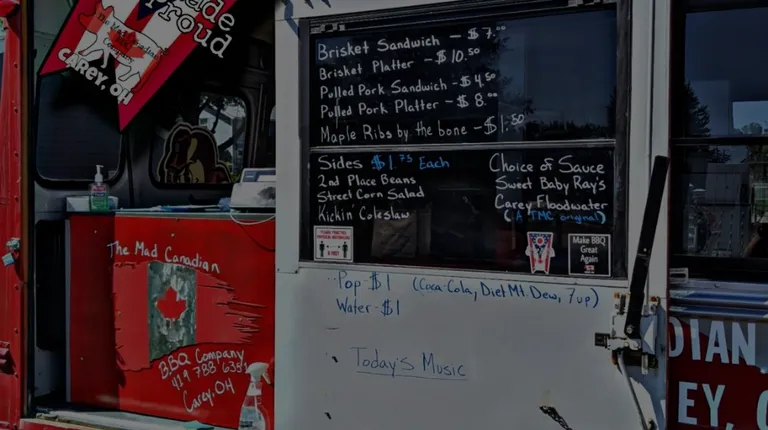 ade
Proud
The Mad Canadian
Company
CAREY, OH
Brisket Sandwich — $7.00
Brisket Platter — $10.50
Pulled Pork Sandwich - $4.50
Pulled Pork Platter — $8.00
Maple Ribs by the bone — $1.50
Sides $1.75 Each
2nd Place Beans
Street Corn Salad
Kickin Coleslaw
Choice of Sauce
Sweet Baby Ray's
Carey Floodwater
(A TMC original)
6 FEET
Make BBQ
Great
Again
Pop $1 (Coca-Cola, Diet Mt. Dew, 7up)
Water - $1
Today's Music
The Mad Canadian
BBQ Company
419 788 6381
Carey, OH
DIAN
EY, O